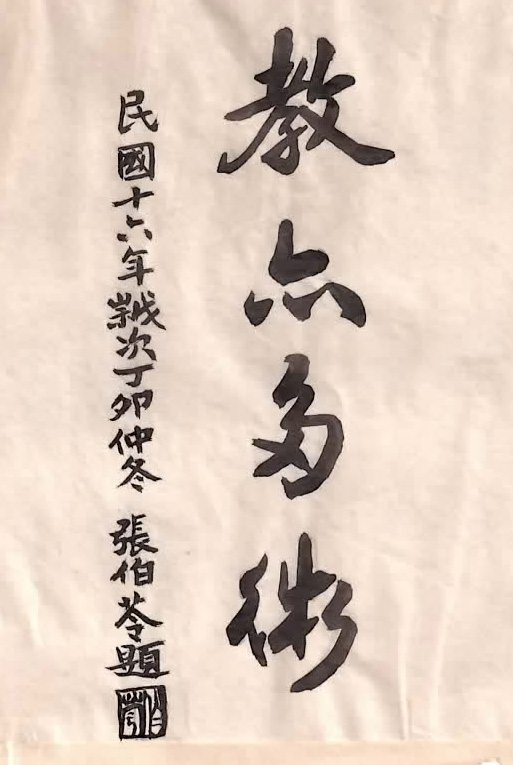 教亦多術
民國十六年歲次丁卯仲冬 張伯苓題
伯苓